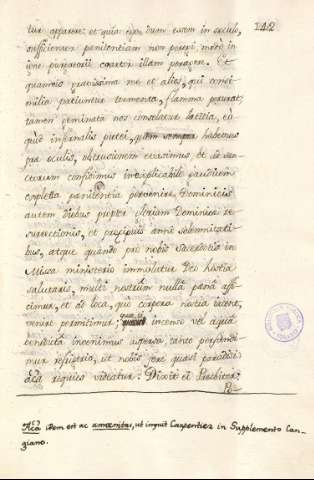 242
tur apparere: et quia ego dum essem in sæculo,
sufficientem penitentiam non peregi, modo in
igne purgatorii coartor illam peragere. Et
quamvis gravissima me et alios, qui consi-
milia patiuntur tormenta, flamma perurat,
tamen geminata nos consolatur lætitia, eo
quod infernalis putei, quem semper habemus
præ oculis, obtrusionem evasimus, et ad sanc-
torum confidimus inexplicabile gaudium
expleta pænitentia pervenire. Dominicis
autem diebus propter gloriam Dominicæ re-
surrectionis, et præcipuis anni solemnitati-
bus, atque quando pro nobis Sacerdotio in
Missa ministerio immolatur Deo hostia
salutaris, multi nostrum nulla pæna affi-
cimur, et ad loca, quo corpora nostra jacent,
venire permittimur: quæ, si incenso vel aqua
benedicta invenimus aspersa tanto perfundi-
mur refrigerio, ut nobis fere quasi paradisi
acta requies videatur. Dixit ei Presbiter:
Acta idem est ac amœnitas, ut inquit Carpentier in Supplemento Can-
giano.